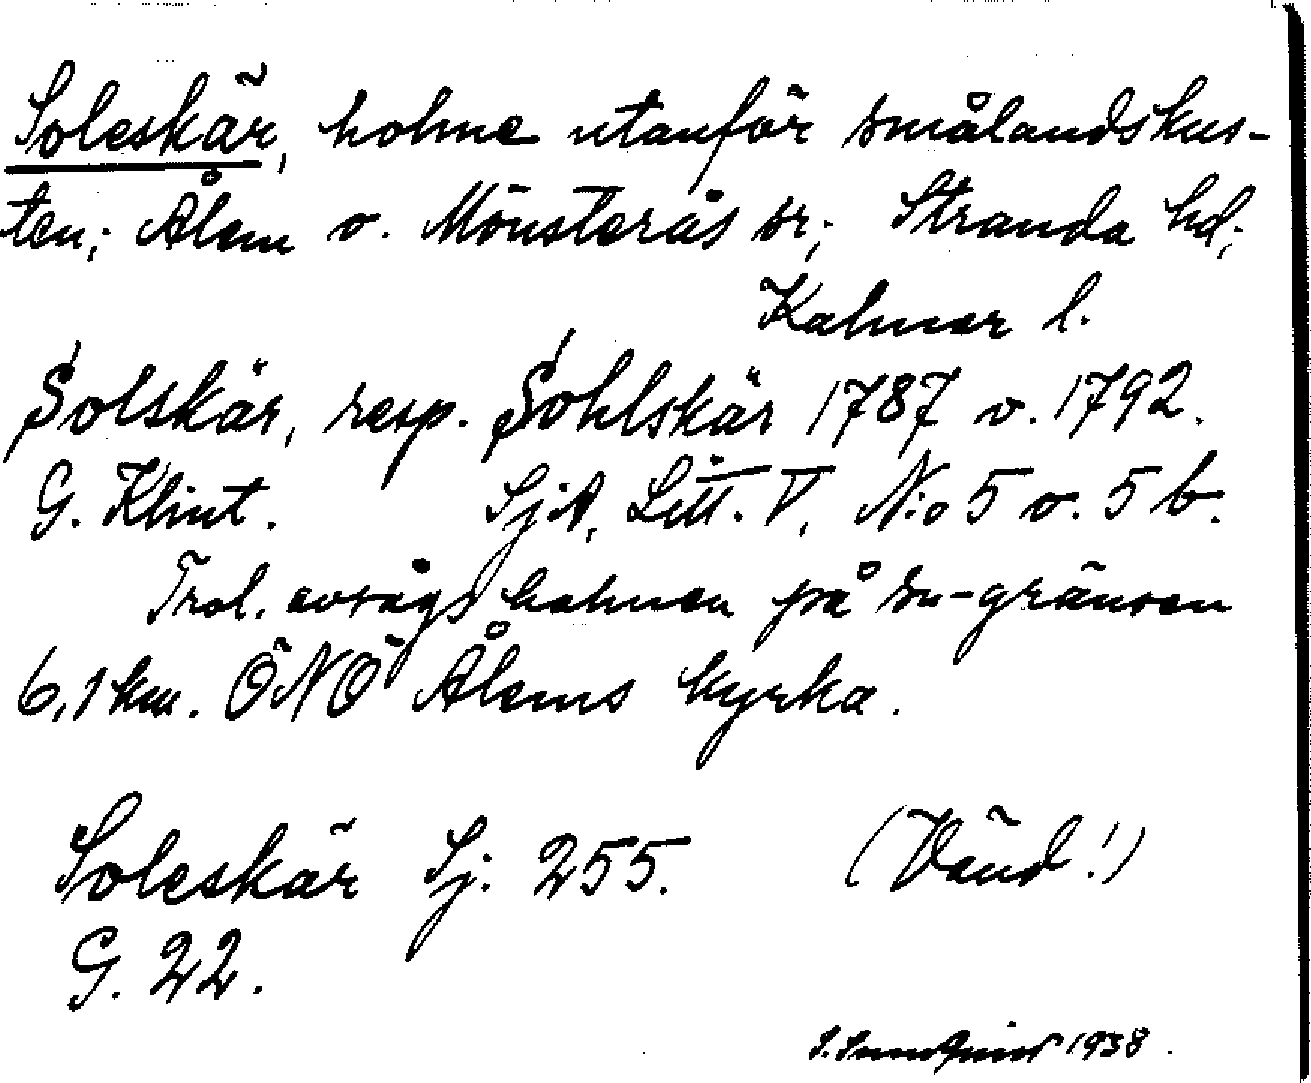 Soleskär, holme utanför smålandskus-
ten; Ålem o. Mönsterås sr; Stranda hd;
Kalmar l.
Solskär, resp. Sohlskär 1787 o. 1792.
G. Klint. SjA, Litt. V, N:o 5 o. 5 b.
Trol. avsågs holmen på sn-gränsen
6,1 km. ÖNÖ Ålems kyrka.
Soleskär Sj. 255. (Vänd!)
G. 22.
1938